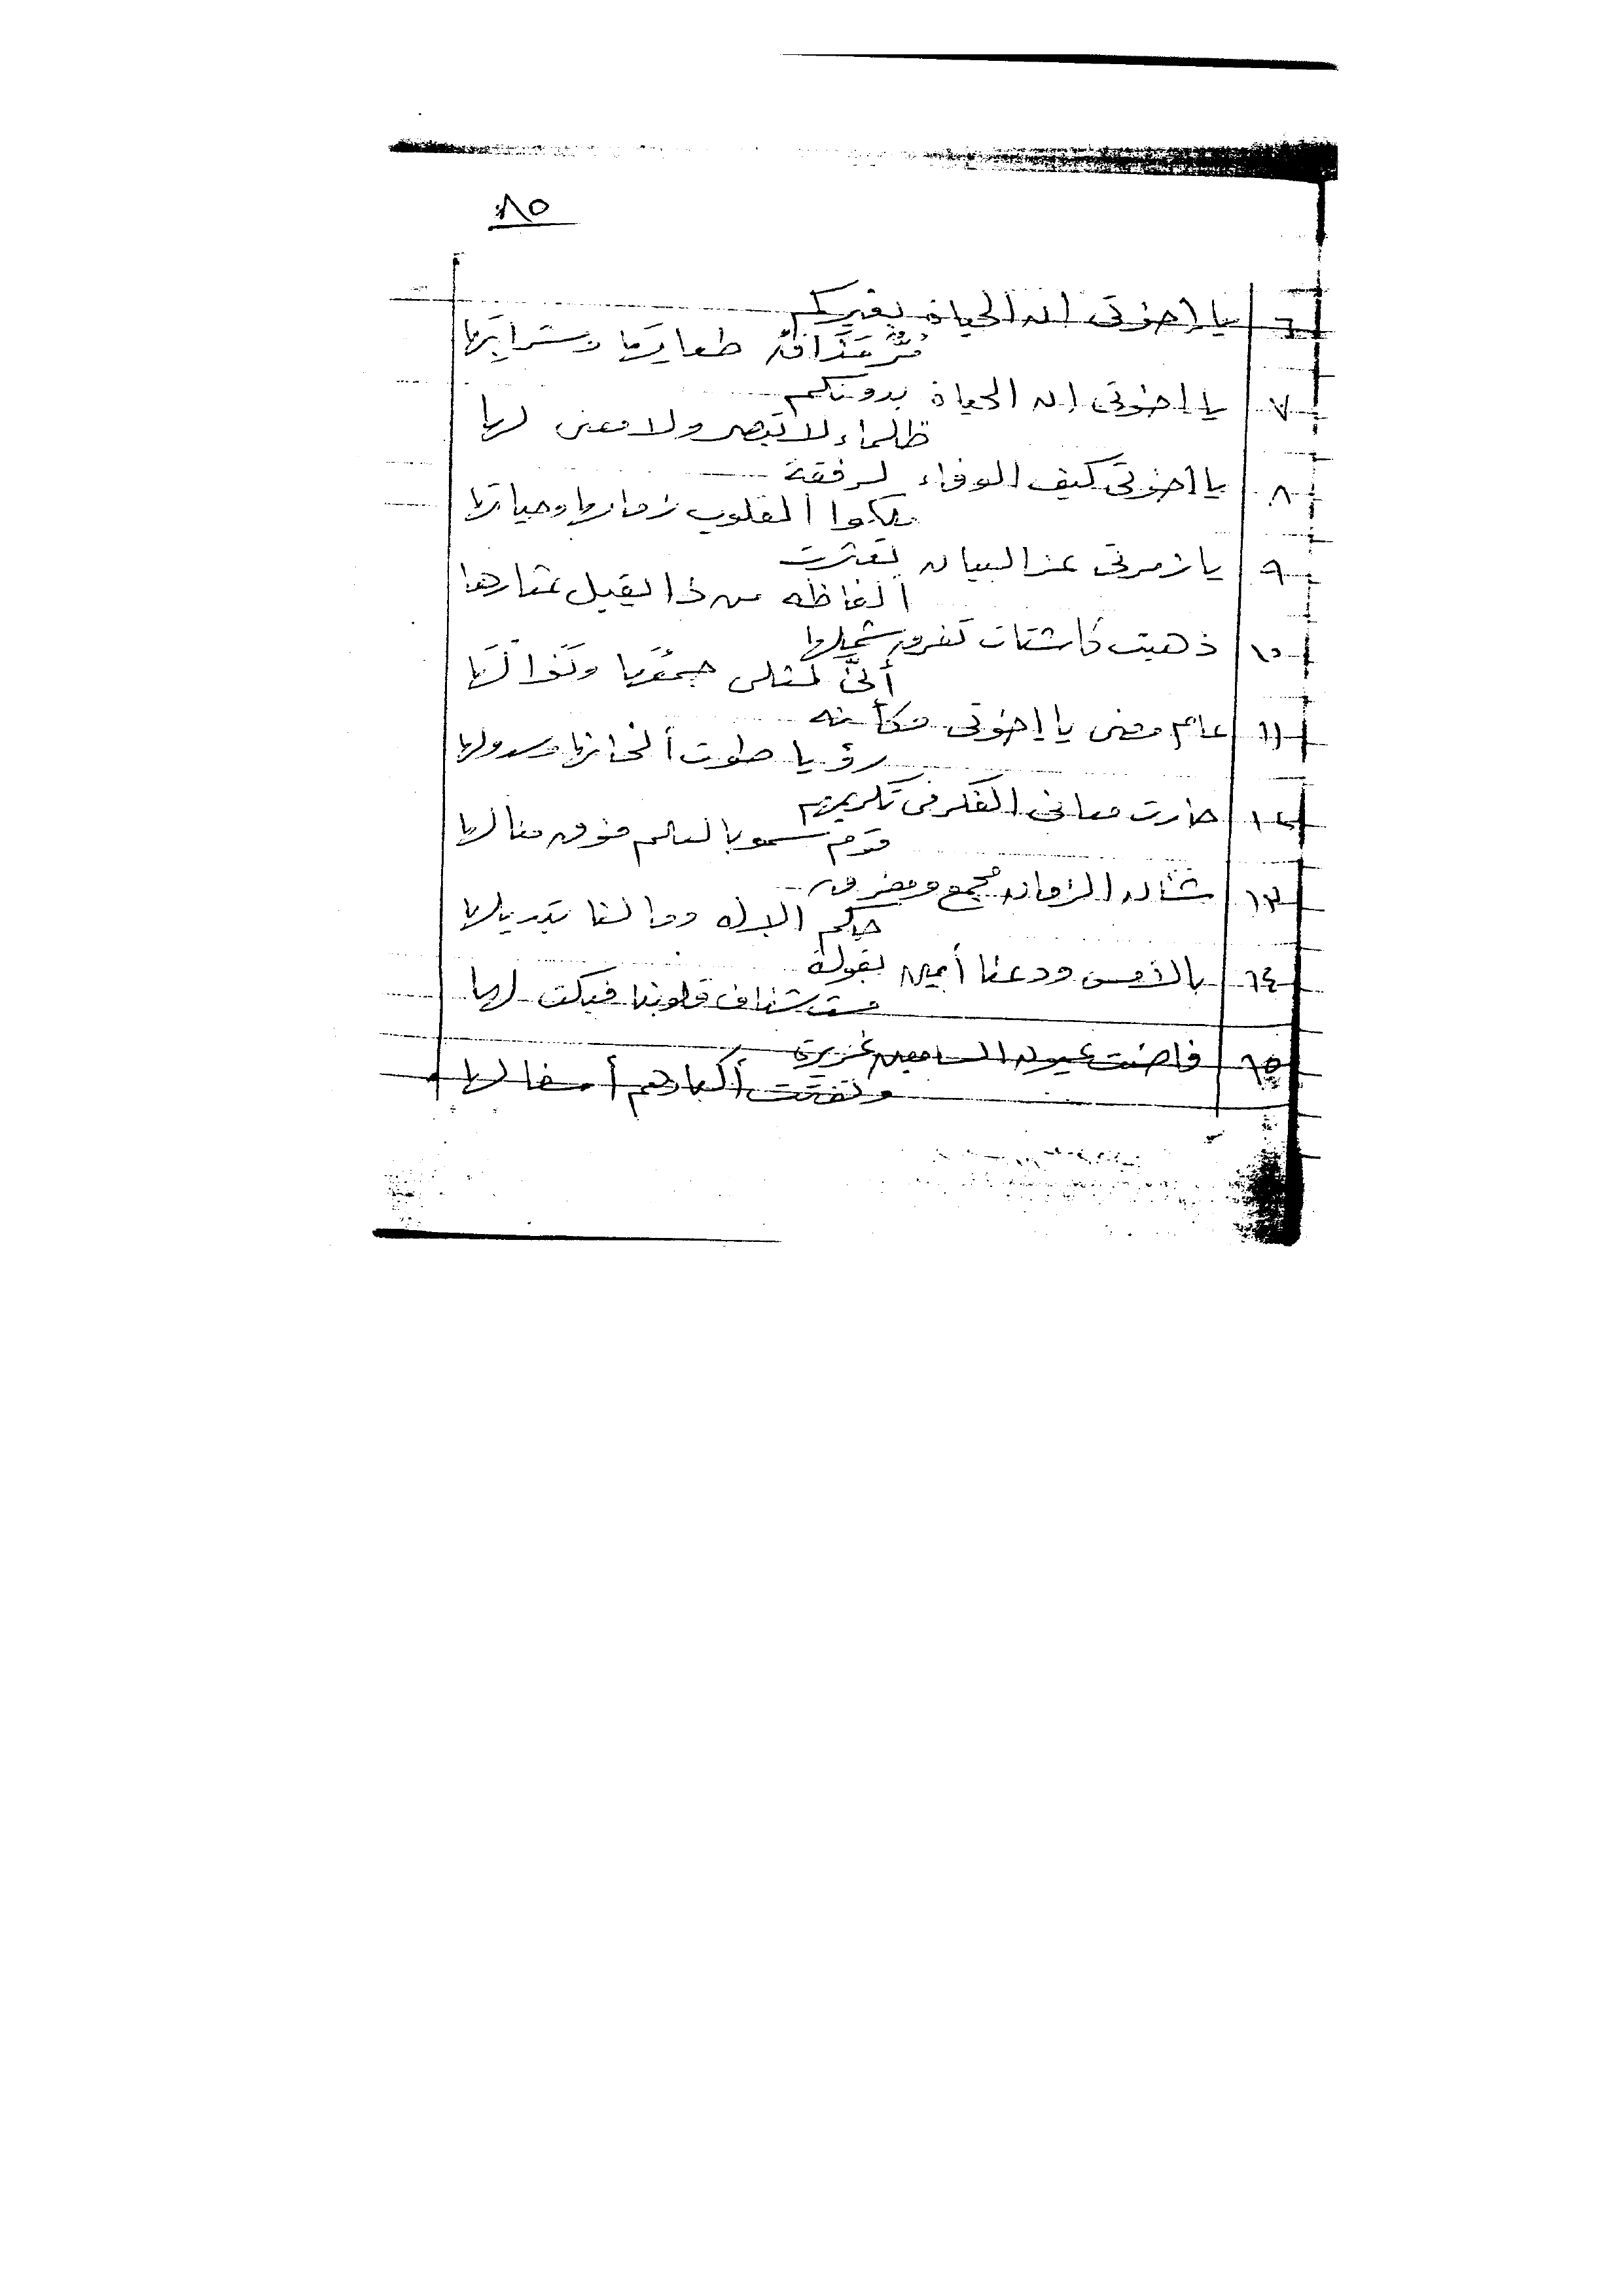 ٨٥
٦ يا إخوتى ان الحياة بغيركم
مُرٌّ مَذَاقُ طعامِها وشرابِها
٧ يا إخوتى إن الحياة بدونكم
ظلماء لا تبصر ولا معنى لها
٨ يا إخوتى كيف الوفاء لرفقة
ملكوا القلوب زمامها وحياتها
٩ يا زمرتى عند البيان تعثرت
ألفاظه من ذا يقيل عثارها
١٠ ذهبت كأشتات تفرق شملها
أنَّى لمثلى جمعُها
١١ عام مضى يا إخوتى فكأنه
رؤيا طوت ألحانها وسدولها
١٢ حارت معانى الفكر فى تكريمهم
قوم سمو بالعلم فوق منالها
١٣ شأن الزمان مجمع ومفرق
حكم الإله وما لنا تبديلها
١٤ بالأمس ودعنا أمين بقولة
مست شغاف قلوبنا فبكت لها
١٥ فاضت عيون السامعين غزيرة
وتفتت أكبادهم أسفا لها